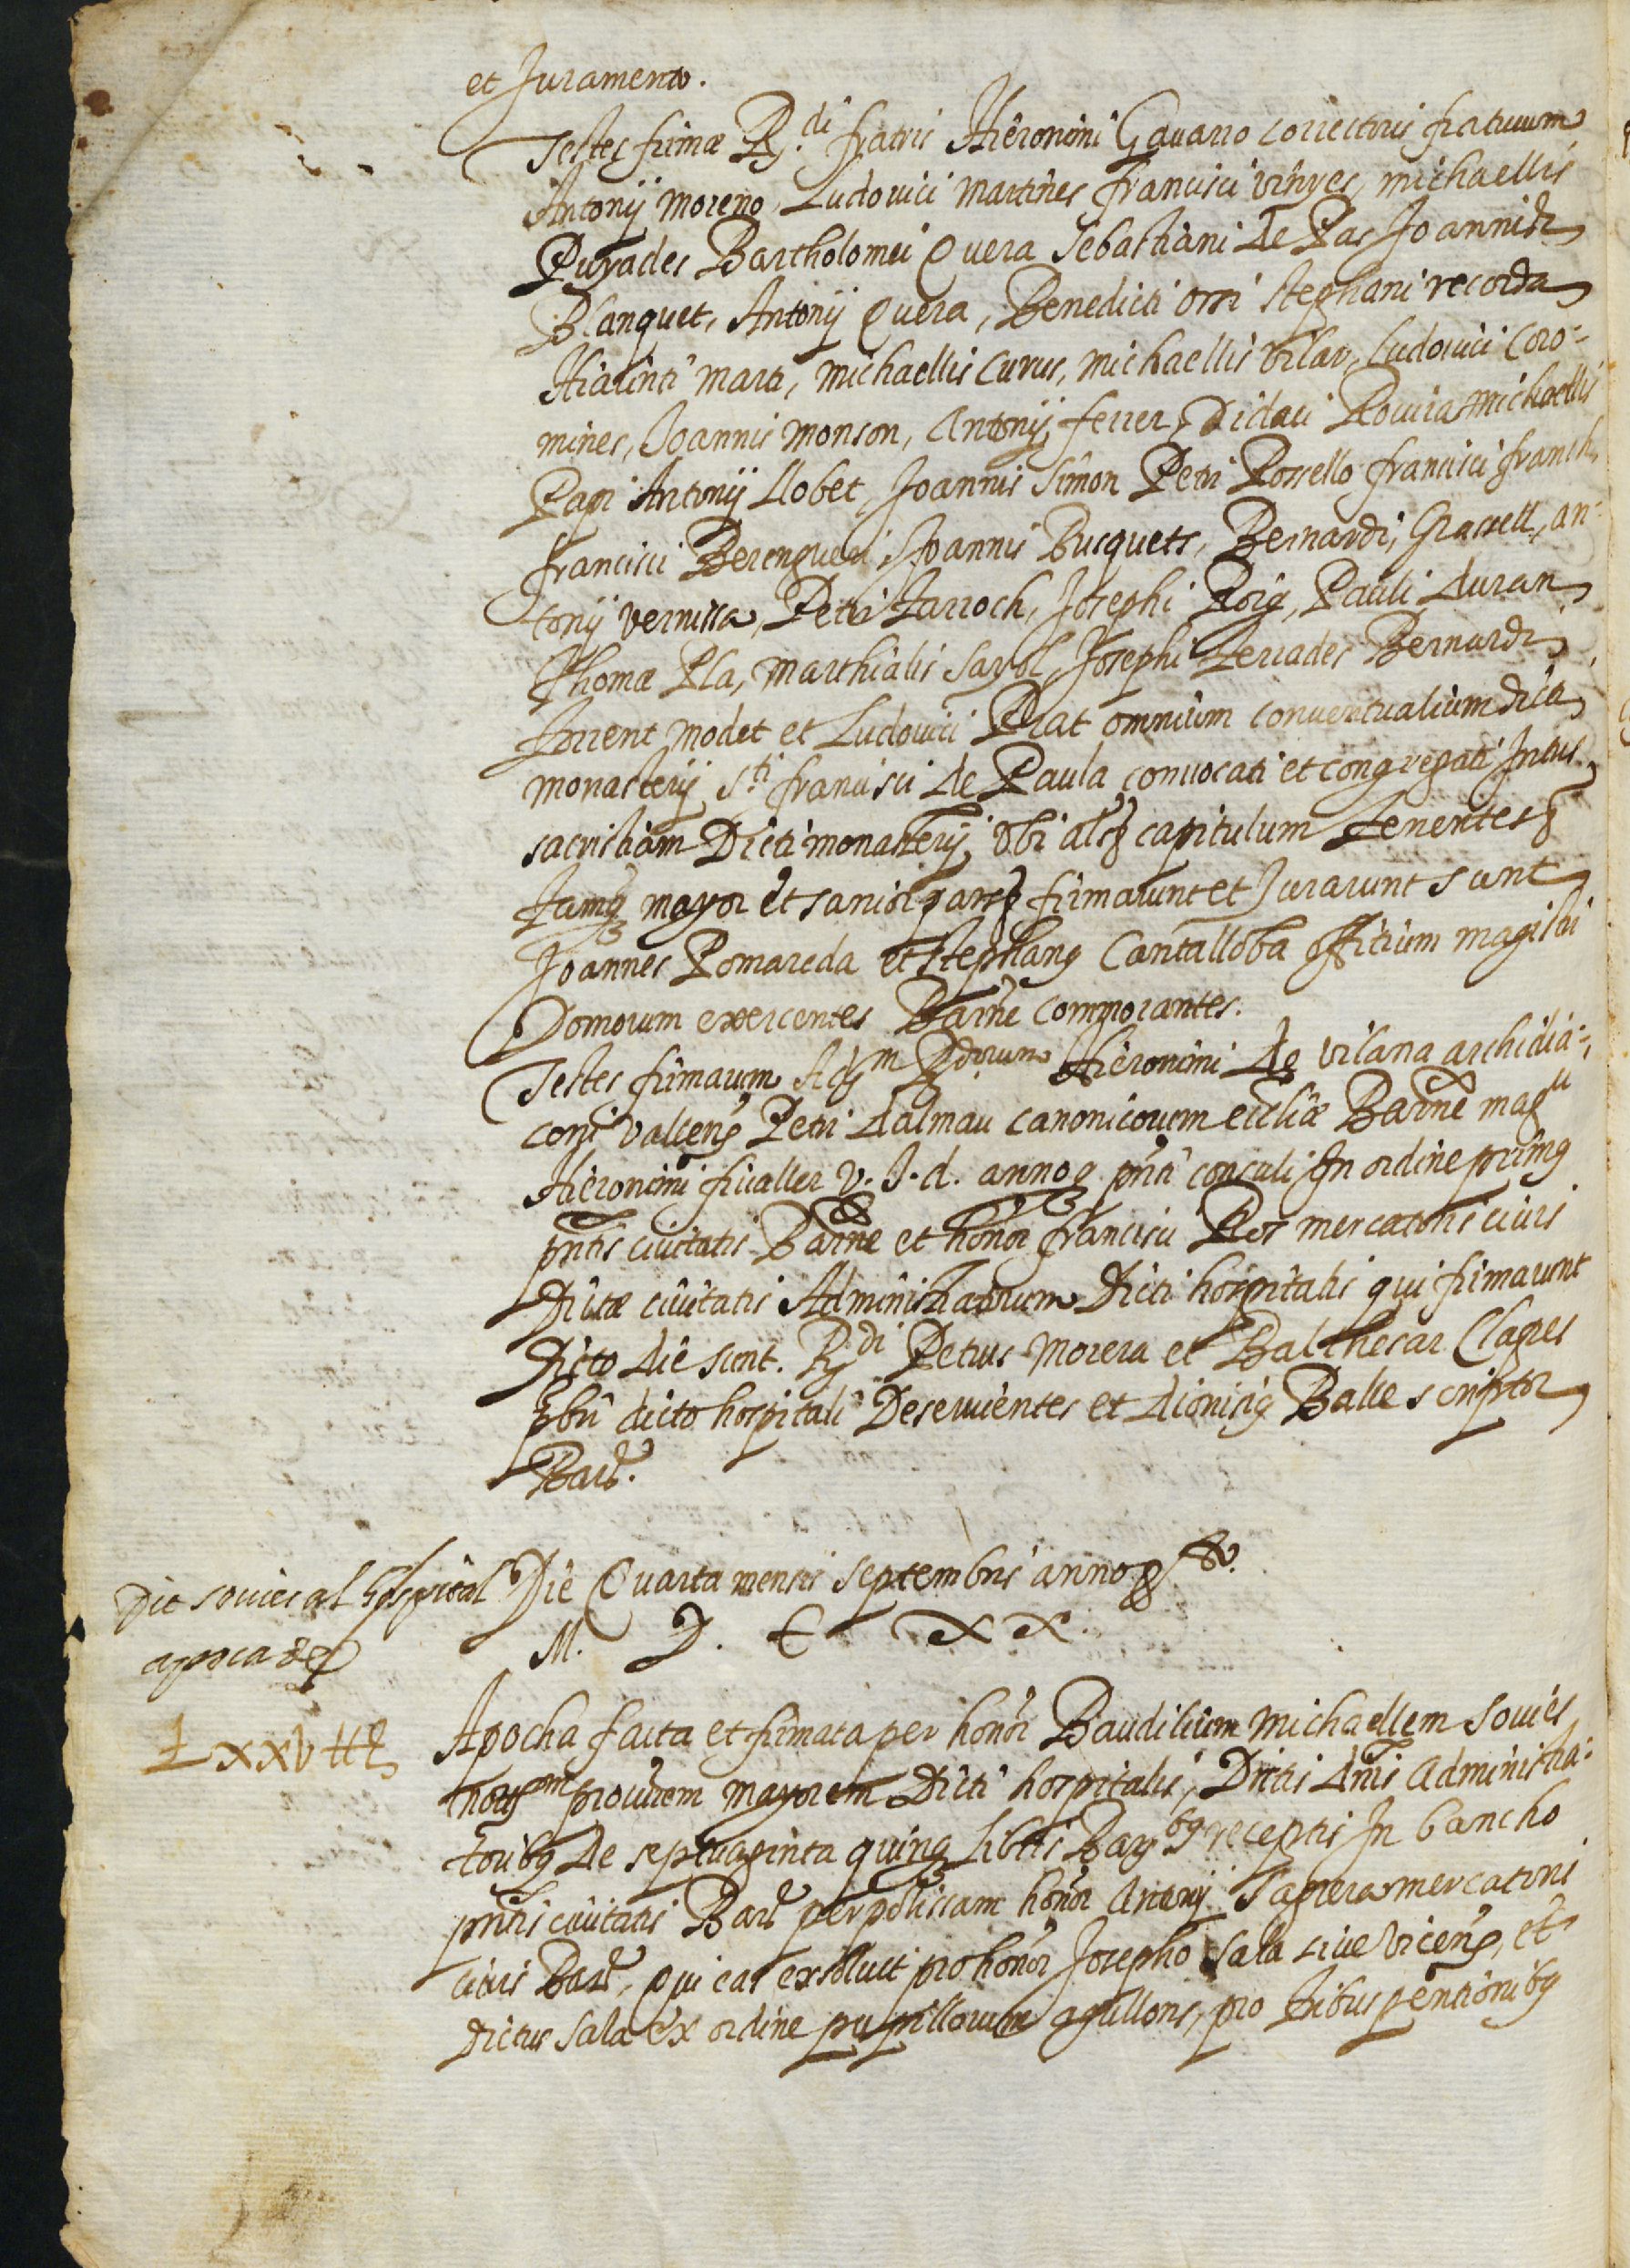 et Juramento.
Testes firmæ R.di fratris Hieronimi Gauarro correctoris fratruum
Antonij Moreno, Ludouici Martines francisci vinyes, michaellis
Puyades Bartholomei Quera Sebastiani de Pas Joannis
Blanquet, Antonij Quera, Benedicti orri stephani recorda
Hiacinti marti, michaellis Curus, michaellis vilar, Ludouici Coro-
mines, Joannis monson, Antonij ferrer, Didaci Rouira michaellis
Papi Antonij Llobet, Joannis Simon Petri Rossello francisci franch,
francisci Berenguer, Joannis Busquets, Bernardi, Grarell, an-
tonij vernissa, Petri Jarroch, Josephi Roig, Pauli duran
Thomæ Pla, marthialis Sayol, Josephi Terrades Bernardi
Torrent modet et Ludouici Prat omnium conuentualium dicti
monasterij S.ti francisci de Paula conuocati et congregati Intus
sacristiam Dicti monasterij vbi als capitulum tenentes
Tamq mayor et sanior pars firmarunt et Jurarunt sunt
Joannes Pomareda et Stephang Cantalloba officium magistri
Domorum exercentes Barñe commorantes.
Testes firmarum Hieronimi de vilana archidia-
coni vallens Petri dalmau canonicorum eccliæ Barñe mag
Hieronimi fiualler V. J. d. anno pñti consuli In ordine primg
pñtis ciuitatis Barñe et honor francisci Ros mercatoris ciuis
Dictæ ciuitatis Administratorum Dicti hospitalis qui firmarunt
Dicto die sunt. R.di Petrus Morera et Balthesar Clapes
pbri dicto hospitali Deseruientes et dionisig Balle scriptor
Barñ.
Dit souies al Hospital
apoca de
LXXV ℔
Die Quarta mensis Septembris anno
M. D. C XX.
Apocha facta et firmata per honor Baudilium Michaellem Souies
procurem mayorem Dicti hospitalis, Dictis dñis Administra-
toribg de septuaginta quinq libris receptis In bancho
pñtis ciuitatis Barñ per polissam honor Antonij Sapera mercatoris
ciuis Barñ, qui eas exsoluit pro honor Josepho Sala siue vicens, et
dictus Sala ex ordine pupillorum agullons, pro tribus pentionibg